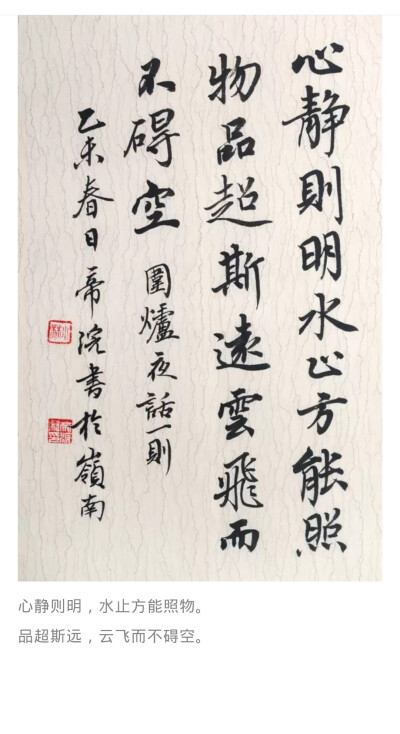 心静则明水止方能照
物品超斯遠雲飛而
不碍空 圍爐夜話一則
乙未春日帝浣書於嶺南
心静则明，水止方能照物。
品超斯远，云飞而不碍空。